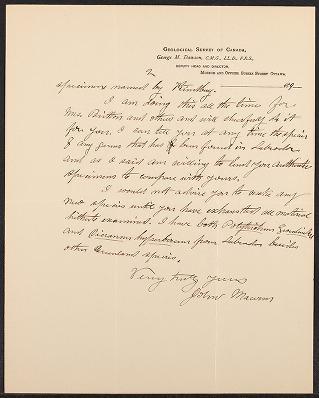 GEOLOGICAL SURVEY OF CANADA,
GEORGE M. DAWSON, C.M.G., LL.D., F.R.S.,
DEPUTY HEAD AND DIRECTOR,
MUSEUM AND OFFICE: SUSSEX STREET OTTAWA.
2
189
specimens named by Kindberg.
I am doing this all the time for
Mrs. Britton and others and will cheerfully do it
for you. I can tell you at any time the species
of any genus that has been found in Labrador
and as I said am willing to lend you authentic
specimens to compare with yours.
I would not advise you to make any
new species until you have exhausted all material
hitherto examined. I have both Polytrichum
and Dicranum hyperboreum from Labrador besides
other Greenland species.
Very truly yours
John Macoun